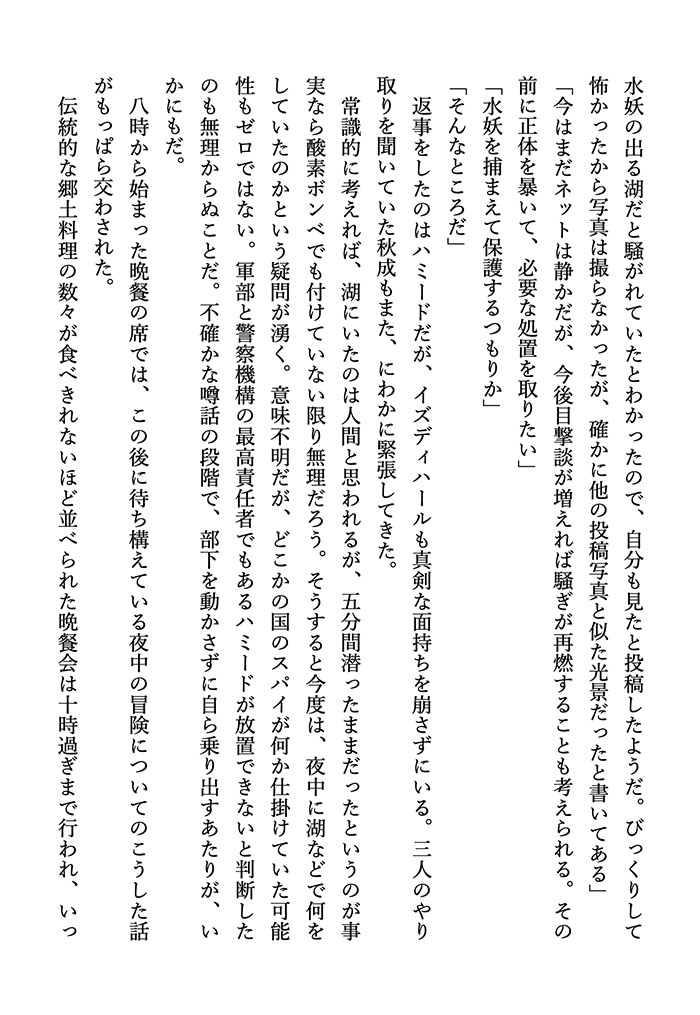 水妖の出る湖だと騒がれていたとわかったので、自分も見たと投稿したようだ。びっくりして
怖かったから写真は撮らなかったが、確かに他の投稿写真と似た光景だったと書いてある」
「今はまだネットは静かだが、今後目撃談が増えれば騒ぎが再燃することも考えられる。その
前に正体を暴いて、必要な処置を取りたい」
「水妖を捕まえて保護するつもりか」
「そんなところだ」
　返事をしたのはハミードだが、イズディハールも真剣な面持ちを崩さずにいる。三人のやり
取りを聞いていた秋成もまた、にわかに緊張してきた。
　常識的に考えれば、湖にいたのは人間と思われるが、五分間潜ったままだったというのが事
実なら酸素ボンベでも付けていない限り無理だろう。そうすると今度は、夜中に湖などで何を
していたのかという疑問が湧く。意味不明だが、どこかの国のスパイが何か仕掛けていた可能
性もゼロではない。軍部と警察機構の最高責任者でもあるハミードが放置できないと判断した
のも無理からぬことだ。不確かな噂話の段階で、部下を動かさずに自ら乗り出すあたりが、い
かにもだ。
　八時から始まった晩餐の席では、この後に待ち構えている夜中の冒険についてのこうした話
がもっぱら交わされた。
　伝統的な郷土料理の数々が食べきれないほど並べられた晩餐会は十時過ぎまで行われ、いっ